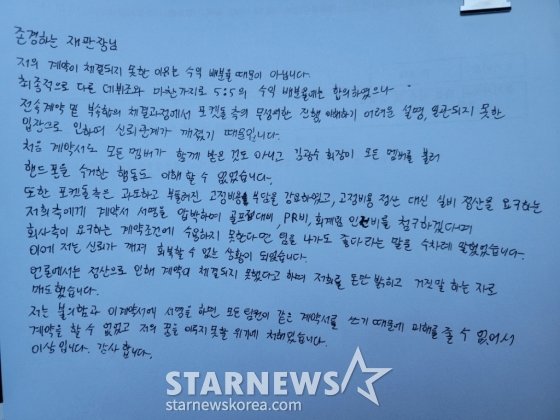 존경하는 재판장님
저의 계약이 체결되지 못한 이유는 수익 배분율때문이 아닙니다.
최종적으로 다른 데뷔조와 마찬가지로 5:5의 수익 배분율에는 합의하였으나
전속계약 및 부속합의 체결과정에서 포켓돌측의 무성의한 진행, 이해하기 어려운 설명, 일관되지 못한
입장으로 인하여 신뢰관계가 깨졌기 때문입니다.
처음 계약서도 모든 멤버가 함께 받은 것도 아니고 김광수 회장이 모든 멤버를 불러
핸드폰을 수거한 행동도 이해할 수 없었습니다.
또한 포켓돌측은 과도하고 부풀려진 고정비용의 부담을 강요하였고, 고정비용 정산 대신 실비 정산을 요구하는
저희측에게 계약서 서명을 압박하며 골프접대비, PR비, 회계팀 인건비를 청구하겠다며
회사측이 요구하는 계약조건에 수용하지 못한다면 팀을 나가도 좋다라는 말을 수차례 말했었습니다.
이에 저는 신뢰가 깨져 회복할 수 없는 상황이 되었습니다.
언론에서는 정산으로 인해 계약이 체결되지 못했다고 하며 저희를 돈만 밝히고 거짓말 하는 자로
매도했습니다.
저는 불의함과 이계약서에 서명을 하면 모든 팀원이 같은 계약서를 쓰기 때문에 피해를 줄 수 없어서
계약을 할 수 없었고 저의 꿈을 이루지 못할 위기에 처해졌습니다.
이상입니다. 감사합니다.
STARNEWS
starnewskorea.com